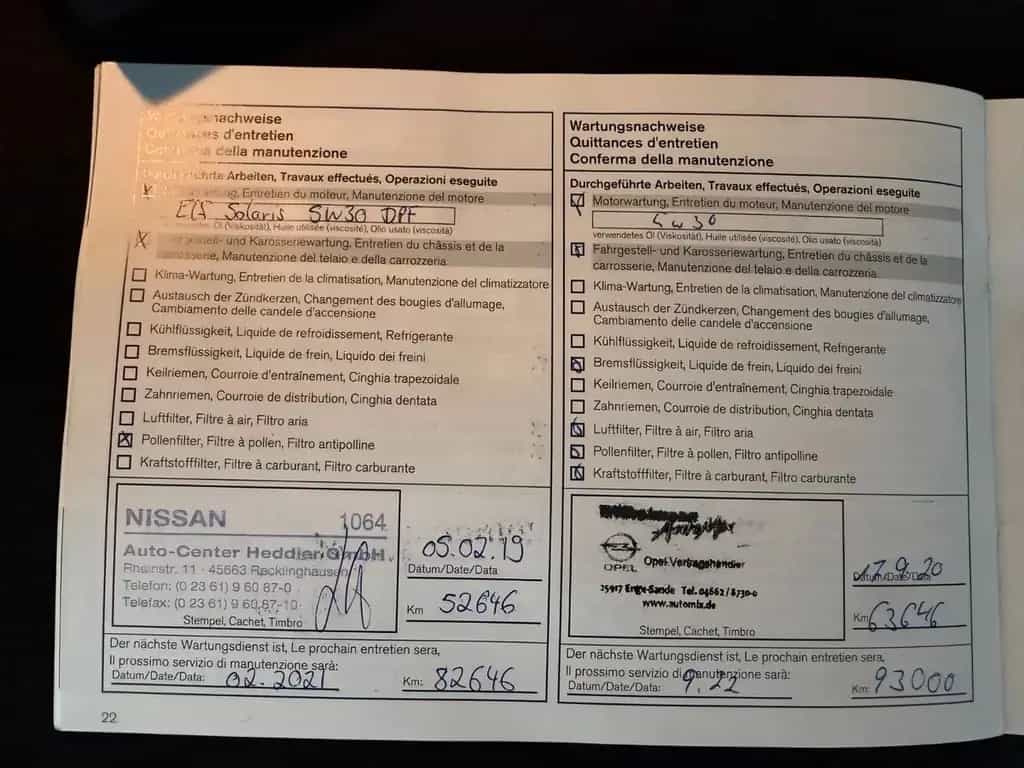 nachweise
d'entretien
della manutenzione
Durchgeführte Arbeiten, Travaux effectués, Operazioni eseguite
Entretien du moteur, Manutenzione del motore
Solaris 5W30 DPF
Öl (Viskosität), Huile utilisée (viscosité), Olio usato (viscosità)
und Karosseriewartung, Entretien du châssis et de la
carrosserie, Manutenzione del telaio e della carrozzeria.
Klima-Wartung, Entretien de la climatisation, Manutenzione del climatizzatore
Austausch der Zündkerzen, Changement des bougies d'allumage,
Cambiamento delle candele d'accensione
Kühlflüssigkeit, Liquide de refroidissement, Refrigerante
Bremsflüssigkeit, Liquide de frein, Liquido dei freini
Keilriemen, Courroie d'entraînement, Cinghia trapezoidale
Zahnriemen, Courroie de distribution, Cinghia dentata
Luftfilter, Filtre à air, Filtro aria
Pollenfilter, Filtre à pollen, Filtro antipolline
Kraftstofffilter, Filtre à carburant, Filtro carburante
NISSAN 1064
Auto-Center Heddier GmbH
Rheinstr. 11 · 45663 Recklinghausen
Telefon: (0 23 61) 9 60 87-0
Telefax: (0 23 61) 9 60 87-10
Stempel, Cachet, Timbro
05.02.19
Datum/Date/Data
Km 52646
Der nächste Wartungsdienst ist, Le prochain entretien sera,
Il prossimo servizio di manutenzione sarà:
Datum/Date/Data: 02.2021 Km: 82646
22
Wartungsnachweise
Quittances d'entretien
Conferma della manutenzione
Durchgeführte Arbeiten, Travaux effectués, Operazioni eseguite
Motorwartung, Entretien du moteur, Manutenzione del motore
5w30
verwendetes Öl (Viskosität), Huile utilisée (viscosité), Olio usato (viscosità)
Fahrgestell- und Karosseriewartung, Entretien du châssis et de la
carrosserie, Manutenzione del telaio e della carrozzeria.
Klima-Wartung, Entretien de la climatisation, Manutenzione del climatizzatore
Austausch der Zündkerzen, Changement des bougies d'allumage,
Cambiamento delle candele d'accensione
Kühlflüssigkeit, Liquide de refroidissement, Refrigerante
Bremsflüssigkeit, Liquide de frein, Liquido dei freini
Keilriemen, Courroie d'entraînement, Cinghia trapezoidale
Zahnriemen, Courroie de distribution, Cinghia dentata
Luftfilter, Filtre à air, Filtro aria
Pollenfilter, Filtre à pollen, Filtro antipolline
Kraftstofffilter, Filtre à carburant, Filtro carburante
OPEL Opel-Vertragshändler
25917 Enge-Sande Tel. 04662 / 8730-0
www.automix.de
Stempel, Cachet, Timbro
17.9.20
Datum/Date/Data
Km 63646
Der nächste Wartungsdienst ist, Le prochain entretien sera,
Il prossimo servizio di manutenzione sarà:
Datum/Date/Data: 9.22 Km: 93000